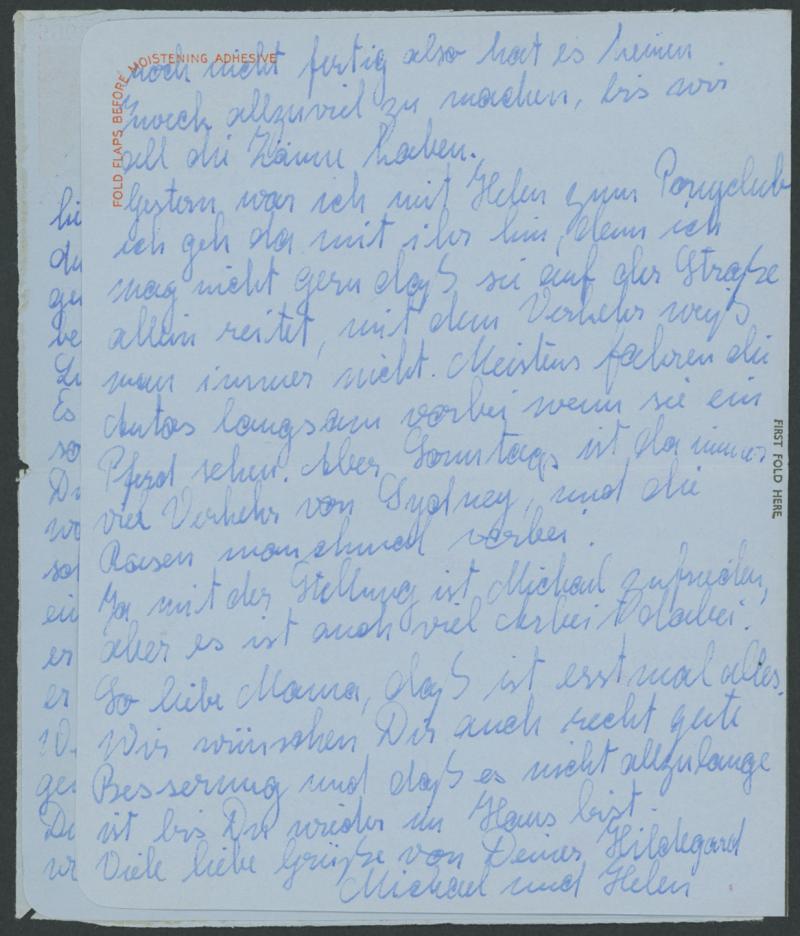 FOLD FLAPS BEFORE MOISTENING ADHESIVE
noch nicht fertig also hat es keinen
Zweck allzuviel zu machen, bis wir
all die Zäune haben.
Gestern war ich mit Helen zum Ponyclub
ich geh da mit ihr hin, denn ich
mag nicht gern daß sie auf der Straße
allein reitet, mit dem Verkehr weyß
man immer nicht. Meistens fahren die
Autos langsam vorbei wenn sie ein
Pferd sehn. Aber Sonntags ist da immer
viel Verkehr von Sydney, und die
Rasen manchmal vorbei.
Ja mit der Stellung ist Michael zufrieden,
aber es ist auch viel Arbeit dabei.
So liebe Mama, daß ist erstmal alles.
Wir wünschen Dir auch recht gute
Besserung und daß es nicht allzulange
ist bis Du wieder im Haus bist.
Viele liebe Grüße von Deiner Hildegard
Michael und Helen
FIRST FOLD HERE
hi
du
ge
be
Li
Es
so
Du
wi
so
ei
er
er
W
ge
Du
w